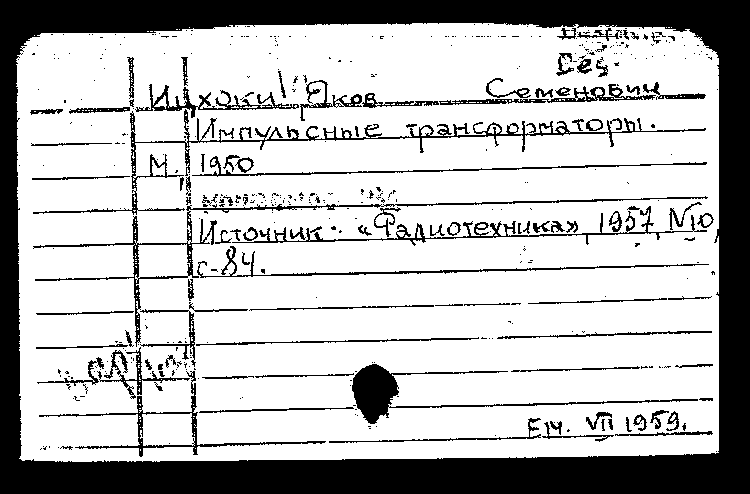 Дес.
Ицхоки Яков Семенович
Импульсные трансформаторы.
М., 1950
Источник: «Радиотехника», 1957, №10,
с-84.
Ем. VII 1959.